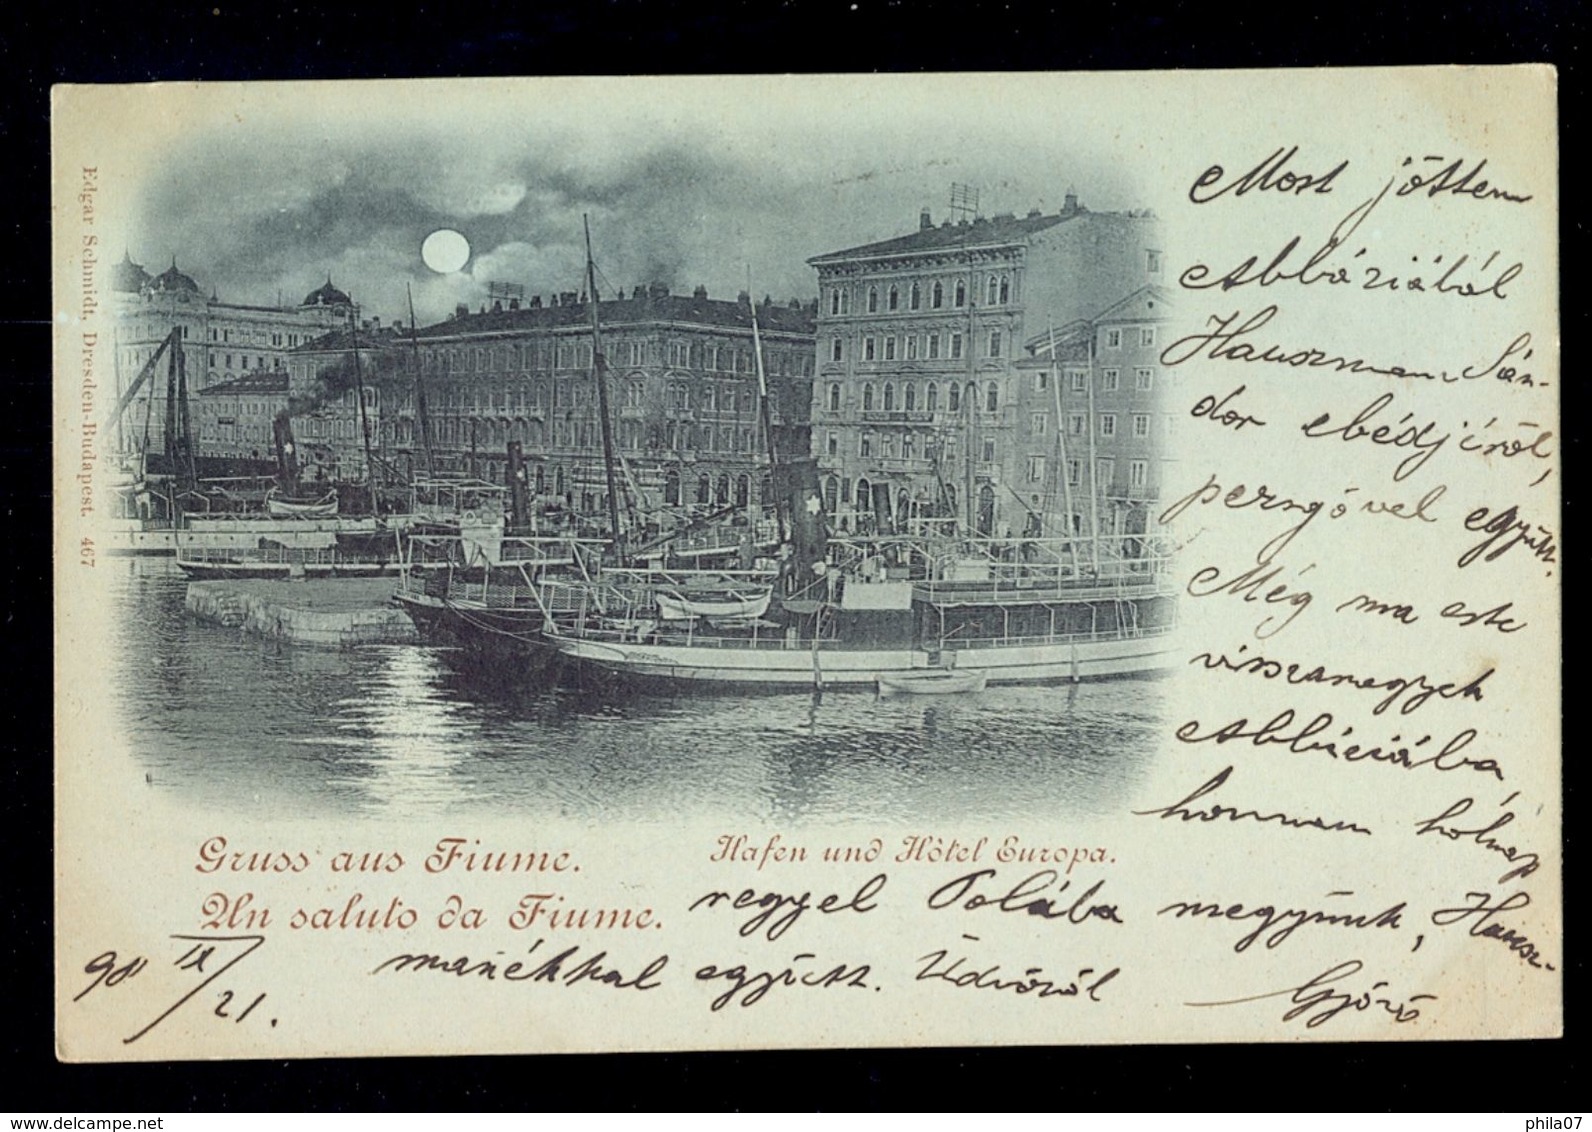 Edgar Schmidt, Dresden-Budapest. 467
Most jöttem
Abbáziából
Hauszmann Sán-
dor ebédjéről,
együtt.
Még ma este
visszamegyek
Abbáziába,
honnan holnap
reggel Polába megyünk, Hausz-
manékkal együtt. Üdvözöl
Győző
Gruss aus Fiume.
Hafen und Hôtel Europa.
Un saluto da Fiume.
98 IX/21.
phila07